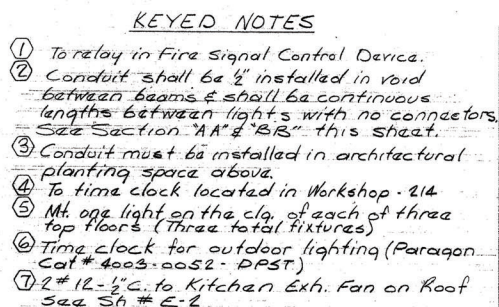 KEYED NOTES
1 To relay in Fire Signal Control Device.
2 Conduit shall be ½" installed in void
between beams & shall be continuous
lengths between lights with no connectors.
See Section "AA" & "BB" this sheet.
3 Conduit must be installed in architectural
planting space above.
4 To time clock located in Workshop - 214
5 Mt. one light on the clg. of each of three
top floors (Three total fixtures)
6 Time clock for outdoor lighting (Paragon
Cat # 4003-0052 - DPST)
7 2 # 12 - ½" C. to Kitchen Exh. Fan on Roof
See Sh # E-2